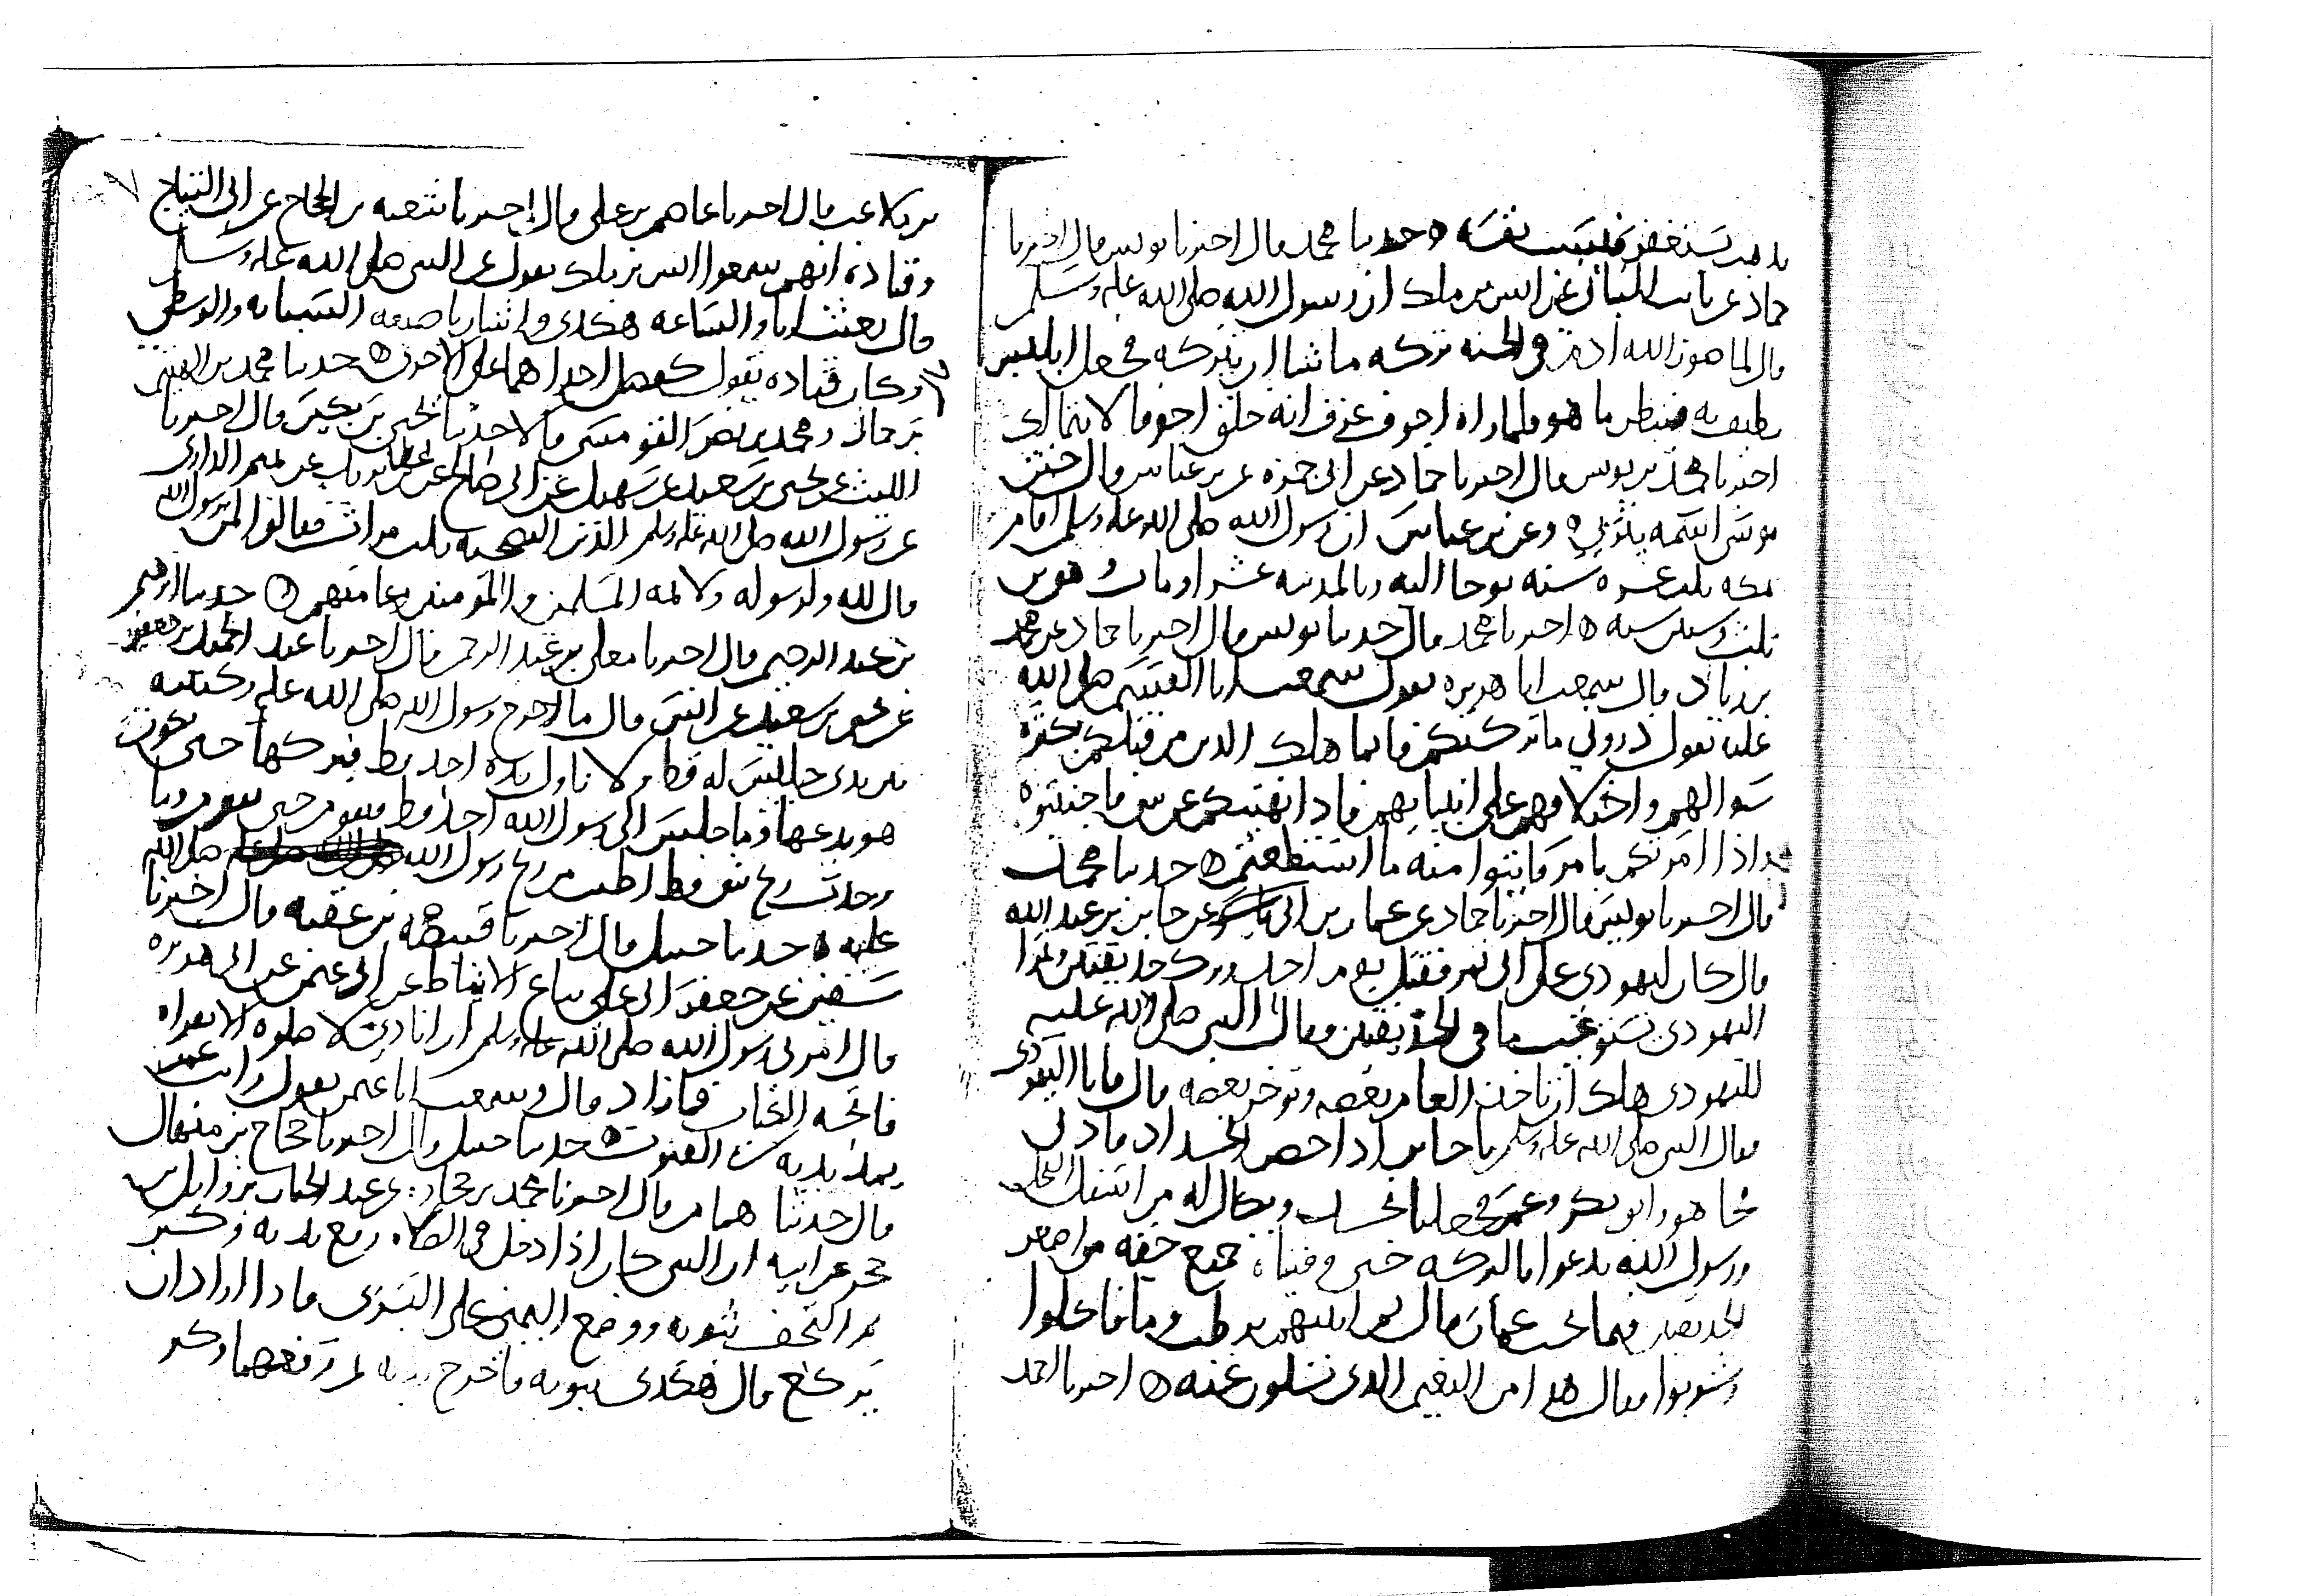 يذهب يستغفر فيسب نفسه ه حدثنا محمد قال اخبرنا يونس قال اخبرنا
حماد عن ثابت البناني عن انس بن ملك ان رسول الله صلى الله عليه وسلم
قال لما صور الله ادم في الجنه تركه ما شا ان يتركه فجعل ابليس
يطيف به فينظر ما هو فلما راه اجوف عرف انه خلق اجوف لا يتمالك
اخبرنا محمد بن يونس قال اخبرنا حماد عن ابي جمره عن بن عباس قال
وعن بن عباس ان رسول الله صلى الله عليه وسلم اقام
بمكه ثلث عشره سنه يوحا اليه وبالمدينه عشرا ومات وهو بن
ثلث وستين سنه ه اخبرنا محمد قال حدثنا يونس قال اخبرنا حماد عن محمد
بن زياد قال سمعت ابا هريره يقول سمعت ابا القسم صلى الله
عليه يقول ذروني ما تركتكم فانما هلك الذين من قبلكم بكثره
سوالهم واختلافهم على انبيايهم فاذا نهيتكم عن شي فاجتنبوه
واذا امرتكم بامر فاتوا منه ما استطعتم ه حدثنا محمد
قال اخبرنا يونس قال اخبرنا حماد عن عمار بن ابي عمار عن جابر بن عبد الله
قال كان ليهودي على ابي تمر فقتل يوم احد وترك حديقتين وتمرا
اليهودي تستوعب ما في الحديقتين فقال النبي صلى الله عليه
لليهودي هل لك ان تاخذ العام بعضه وتوخر بعضه قال فابا اليهودي
فقال النبي صلى الله عليه وسلم يا جابر اذا حضر الجداد فاذني
فجا هو وابو بكر وعمر فجعلنا نجد ويكال له من اسفل النخل
ورسول الله يدعوا بالبركه حتى وفيناه جميع حقه من اصغر
الحديقتين فيما يحسب عمار قال ثم اتيتهم برطب وما فاكلوا
وشربوا فقال هذا من النعيم الذي تسلون عنه ه اخبرنا احمد
بن ملاعب قال اخبرنا عاصم بن علي قال اخبرنا شعبه بن الحجاج عن ابي التياح
وقتاده انهم سمعوا انس بن ملك يقول عن النبي صلى الله عليه وسلم
قال بعثت انا والساعه هكذى واشار باصبعه السبابه والوسطى
وكان قتاده يقول كفضل احداهما على الاخرى ه حدثنا محمد بن الهيثم
بن حماد ومحمد بن نصر القومسي قالا حدثنا يحيى بن بكير قال اخبرنا
الليث عن يحيى بن سعيد عن سهيل عن ابي صالح عن عطا بن يزيد عن تميم الداري
عن رسول الله صلى الله عليه وسلم الدين النصيحه ثلث مرات فقالوا لمن يرسول الله
قال لله ولرسوله ولايمه المسلمين والمومنين وعامتهم ه حدثنا ابرهيم
بن عبد الرحيم قال اخبرنا معلى بن عبد الرحمن قال اخبرنا عبد الحميد بن جعفر
عن يحيى بن سعيد عن انس قال ما اخرج رسول الله صلى الله عليه ركبتيه
بين يدي جليس له قط ولا ناول يده احد قط فيتركها حتى يكون
هو يدعها وما جلس الى رسول الله احد قط فيقوم حتى يقوم وما
وجدت ريح شي قط اطيب من ريح رسول الله صلى الله
عليه ه حدثنا حنبل قال اخبرنا قبيصه بن عقبه قال اخبرنا
سفين عن جعفر ابي علي بياع الانماط عن ابي عثمن عن ابي هريره
قال امرني رسول الله صلى الله عليه وسلم ان انادي لا صلوه الا بقراه
فاتحه الكتاب فما زاد قال وسمعت ابا عثمن يقول رايت عمر
يمد يديه في القنوت ه حدثنا حنبل قال اخبرنا حجاج بن منهال
قال حدثنا همام قال اخبرنا محمد بن جحاده عن عبد الجبار بن وايل بن
حجر عن ابيه ان النبي كان اذا دخل في الصلاه رفع يديه وكبر
ثم التحف بثوبه ووضع اليمنى على اليسرى فاذا اراد ان
يركع قال هكذى بثوبه فاخرج يديه ثم رفعهما وكبر